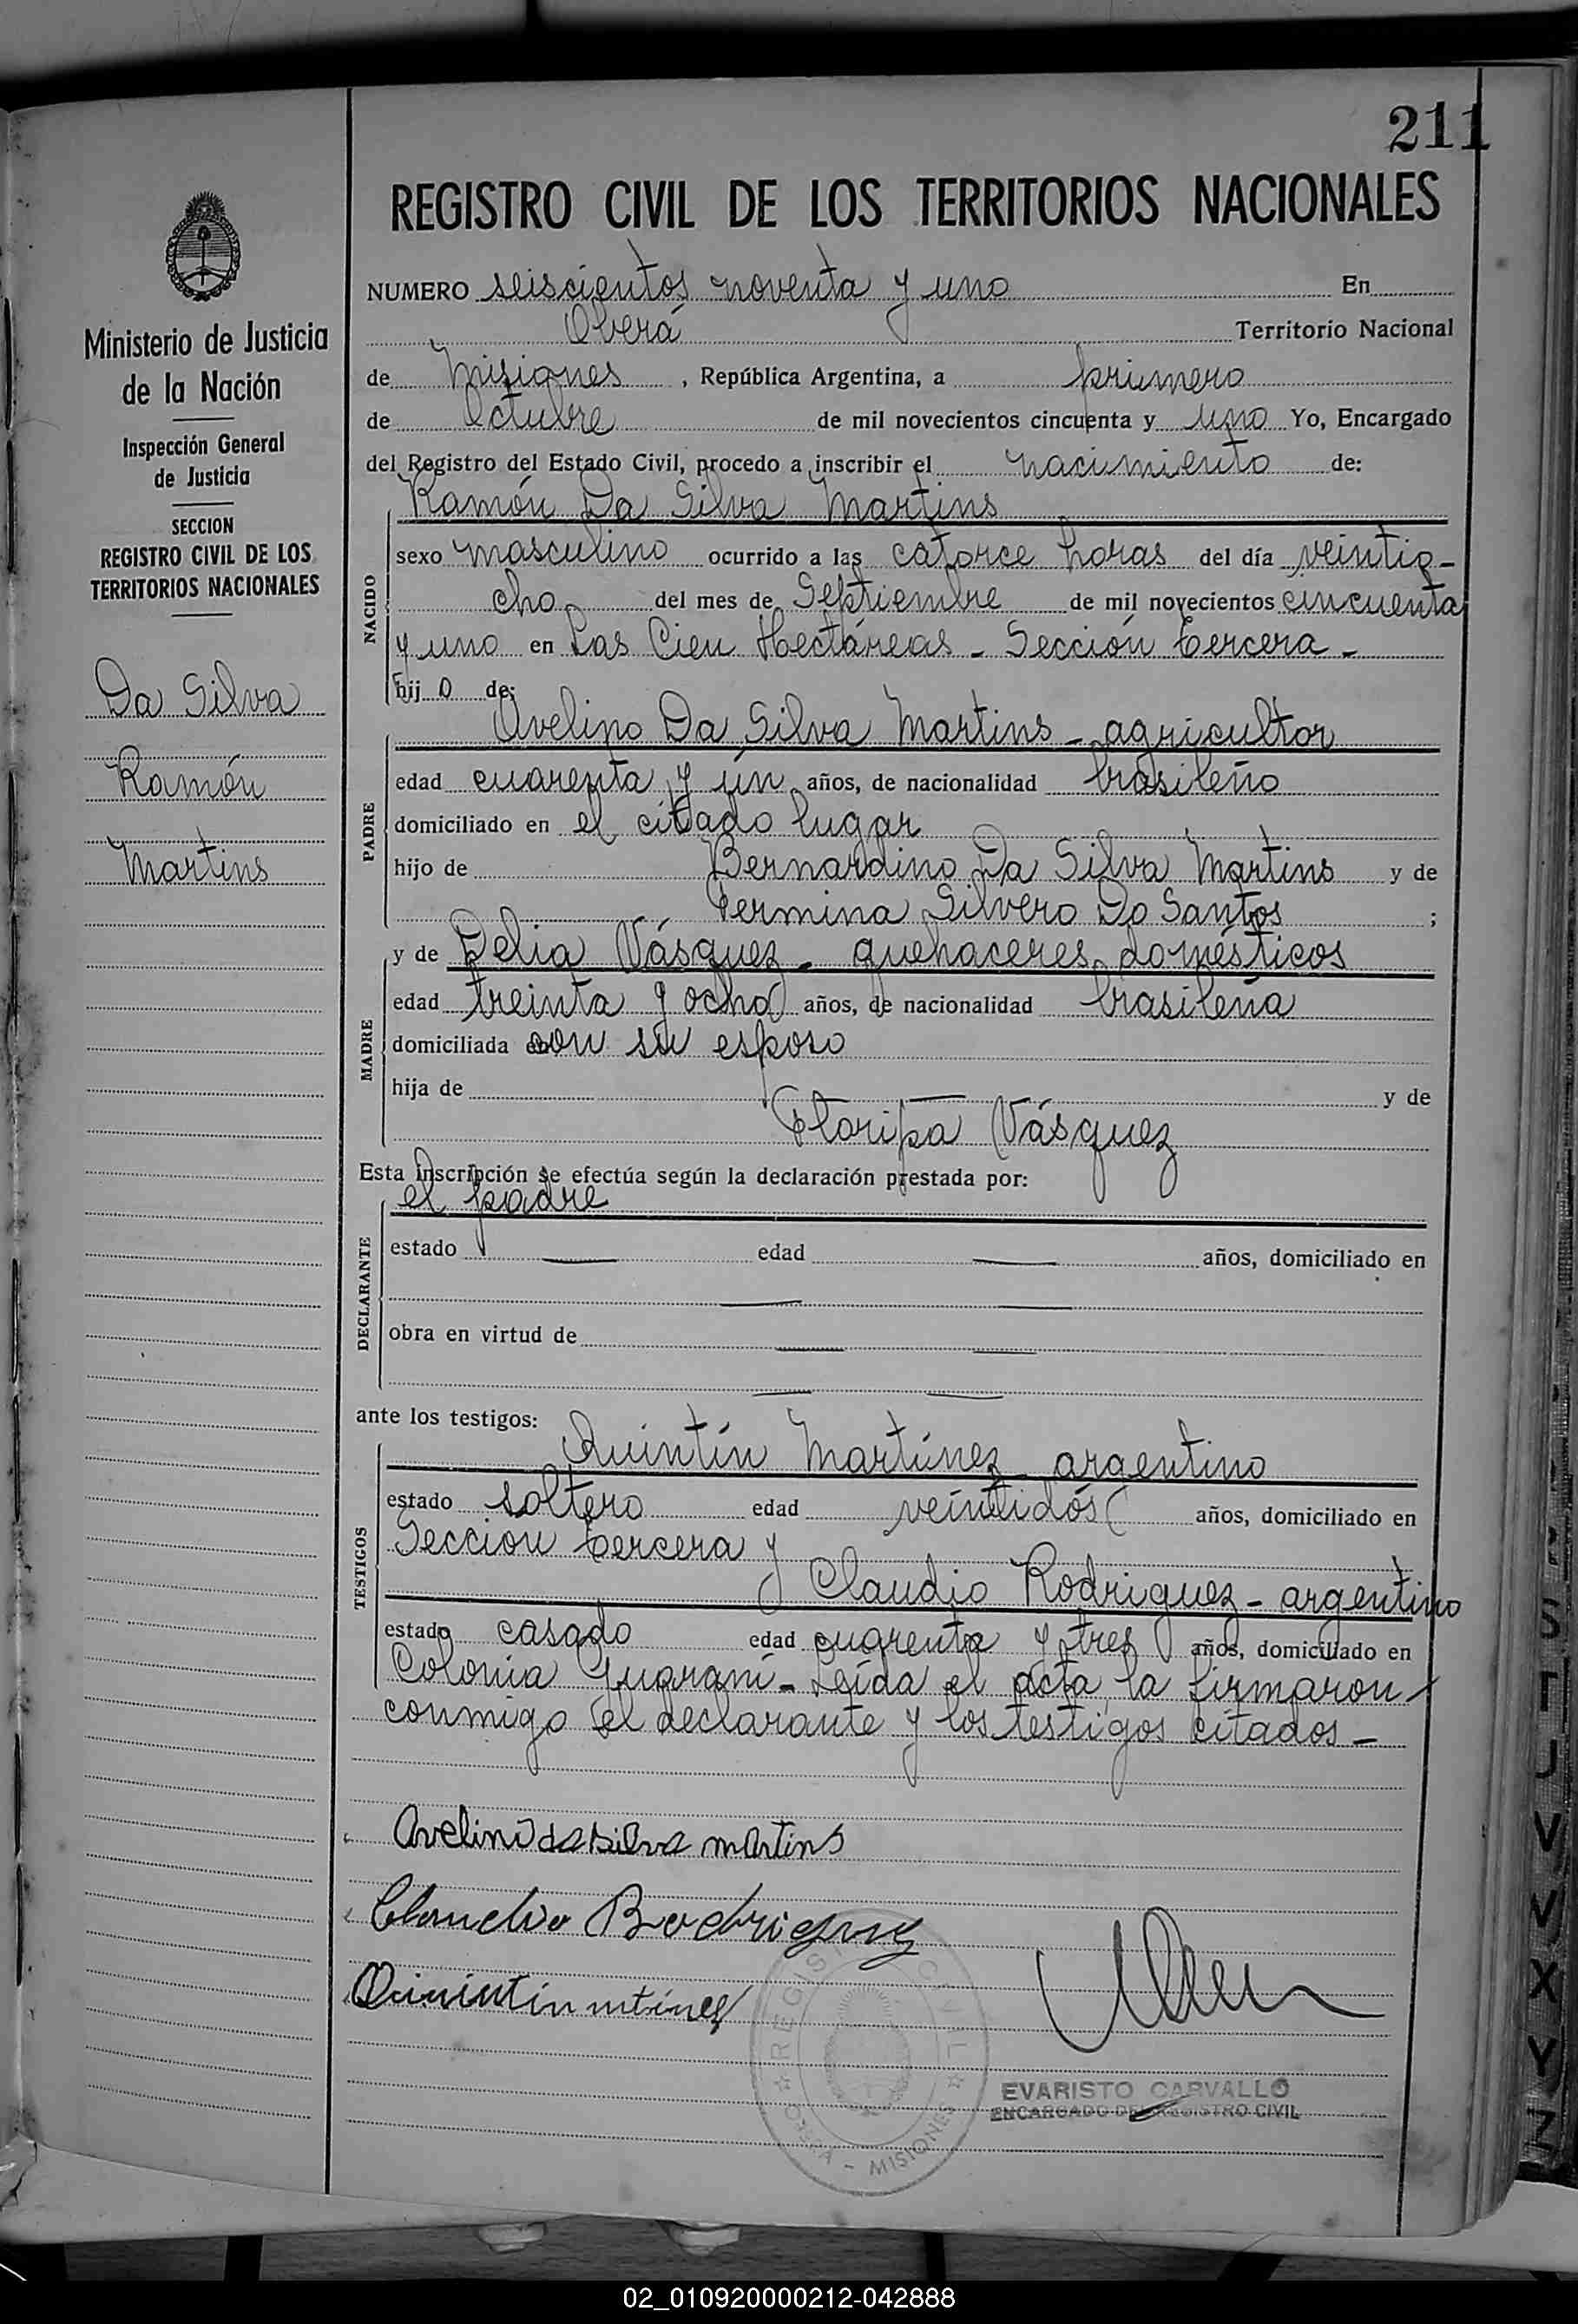 211
REGISTRO CIVIL DE LOS TERRITORIOS NACIONALES
Ministerio de Justicia
de la Nación
Inspección General
de Justicia
SECCION
REGISTRO CIVIL DE LOS
TERRITORIOS NACIONALES
Da Silva
Ramón
Martins
NUMERO seiscientos noventa y uno En
Oberá Territorio Nacional
de Misiones, República Argentina, a primero
de Octubre de mil novecientos cincuenta y uno Yo, Encargado
del Registro del Estado Civil, procedo a inscribir el nacimiento de:
Ramón Da Silva Martins
NACIDO
sexo masculino ocurrido a las catorce horas del día veintio-
cho del mes de Septiembre de mil novecientos cincuenta
y uno en Las Cien Hectáreas - Sección tercera -
hijo de:
Avelino Da Silva Martins - agricultor
PADRE
edad cuarenta y ún años, de nacionalidad brasileño
domiciliado en el citado lugar
hijo de Bernardino Da Silva Martins y de
Fermina Silvero Do Santos ;
y de Delia Vásquez - quehaceres domésticos
MADRE
edad treinta y ocho años, de nacionalidad brasileña
domiciliada con su esposo
hija de — y de
Floripa Vásquez
Esta inscripción se efectúa según la declaración prestada por:
el padre
DECLARANTE
estado — edad — años, domiciliado en
— —
obra en virtud de — —
— —
ante los testigos:
Quintín Martínez - argentino
TESTIGOS
estado soltero edad veintidós años, domiciliado en
Sección tercera y
Claudio Rodriguez - argentino
estado casado edad cuarenta y tres años, domiciliado en
Colonia Guaraní - Leída el acta la firmaron
conmigo el declarante y los testigos citados -
Avelino da silva martins
Claudio Rodriguez
Quintin
REGISTRO CIVIL
OBERA - MISIONES
EVARISTO CARVALLO
ENCARGADO DEL REGISTRO CIVIL
S
T
J
V
V
X
Y
Z
02_010920000212-042888